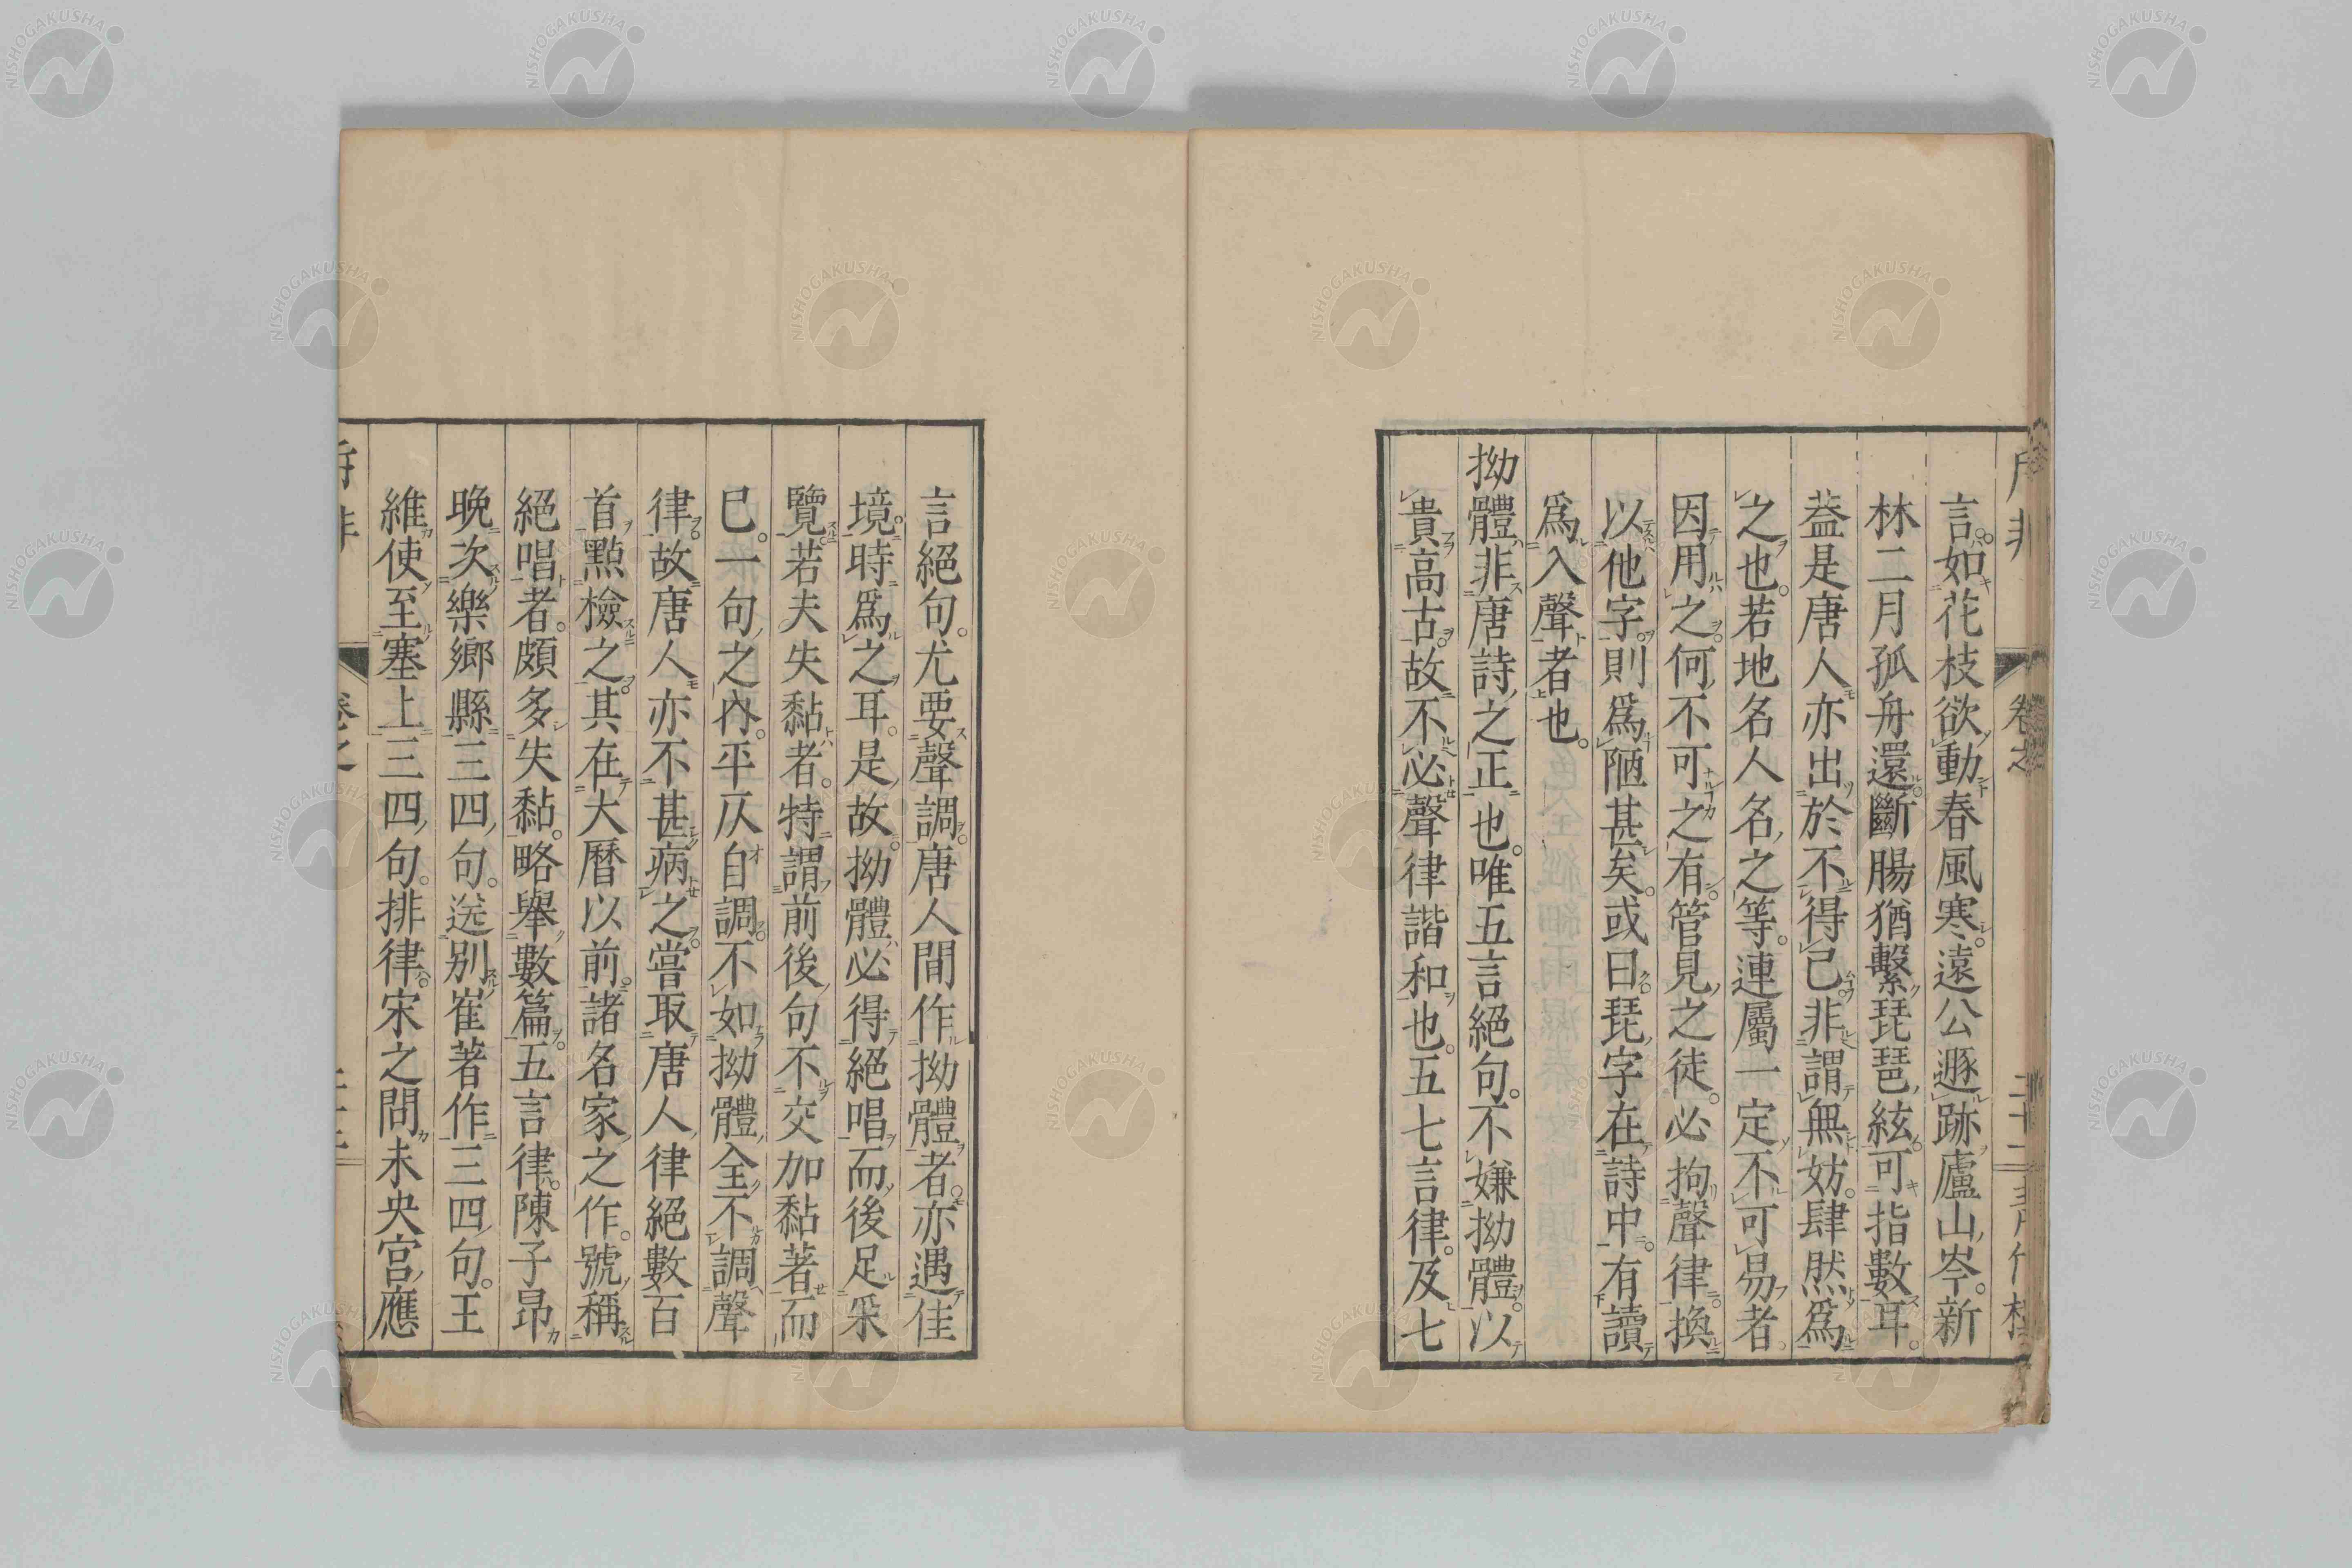 言如花枝欲動春風寒遠公遯跡廬山岑。新
林二月孤舟還斷腸猶繫琵琶絃可指數耳。
葢是唐人亦出於不得已。非謂無妨。肆然爲
之也。若地名人名之等。連屬一定不可易者。
因用之何不可之有。管見之徒。必拘聲律換
以他字。則爲陋甚矣。或曰琵字在詩中。有讀
爲入聲者也。
拗體非唐詩之正也。唯五言絕句。不嫌拗體。以
貴高古。故不必聲律諧和也。五七言律。及七
言絕句。尤要聲調。唐人間作拗體者。亦遇佳
境。時爲之耳。是故拗體必得絕唱而後足采
覽。若夫失黏者。特謂前後句不交加黏著而
已。一句之內。平仄自調。不如拗體全不調聲
律。故唐人亦不甚病之。嘗取唐人律絕數百
首。點檢之。其在大曆以前。諸名家之作。號稱
絕唱者。頗多失黏。略舉數篇。五言律。陳子昂
晚次樂鄉縣三四句。送別崔著作三四句。王
維使至塞上三四句。排律。宋之問未央宮應
卷之
NISHOGAKUSHA